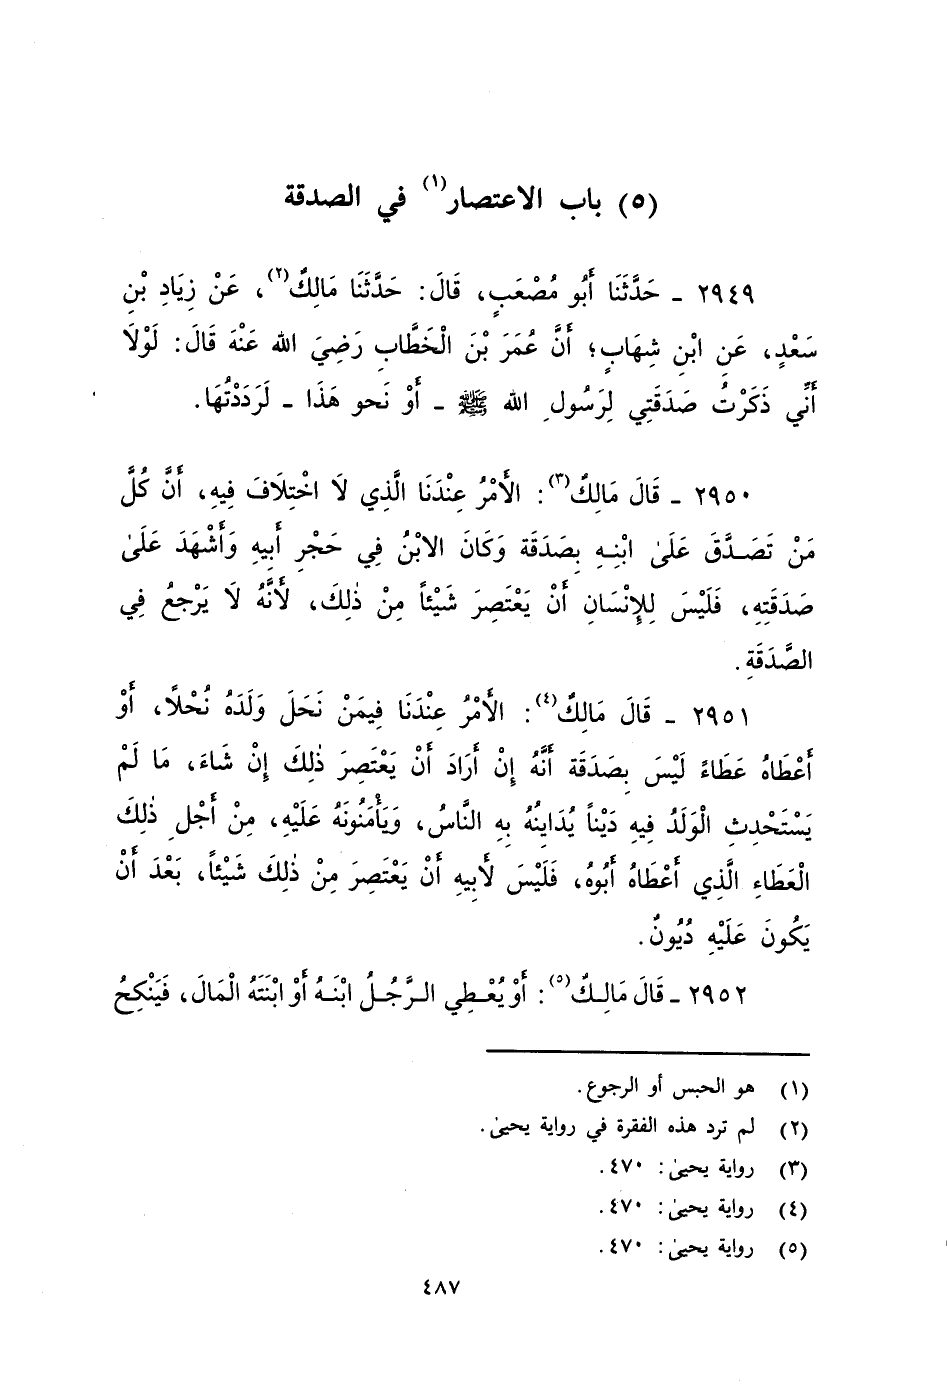 (٥) باب الاعتصار(١) في الصدقة
٢٩٤٩ ـ حَدَّثَنَا أَبُو مُصْعَبٍ، قَالَ: حَدَّثَنَا مَالِكٌ(٢)، عَنْ زِيَادِ بْنِ
سَعْدٍ، عَنِ ابْنِ شِهَابٍ؛ أَنَّ عُمَرَ بْنَ الْخَطَّابِ رَضِيَ الله عَنْهُ قَالَ: لَوْلَا
أَنِّي ذَكَرْتُ صَدَقَتِي لِرَسُولِ الله ﷺ ـ أَوْ نَحو هَذَا ـ لَرَدَدْتُهَا.
٢٩٥٠ ـ قَالَ مَالِكٌ(٣): الأَمْرُ عِنْدَنَا الَّذِي لَا اخْتِلَافَ فِيهِ، أَنَّ كُلَّ
مَنْ تَصَدَّقَ عَلَىٰ ابْنِهِ بِصَدَقَة وَكَانَ الابْنُ فِي حَجْرِ أَبِيهِ وَأَشْهَدَ عَلَىٰ
صَدَقَتِهِ، فَلَيْسَ لِلإِنْسَانِ أَنْ يَعْتَصِرَ شَيْئاً مِنْ ذٰلِكَ، لأَنَّهُ لَا يَرْجعُ فِي
الصَّدَقَةِ.
٢٩٥١ ـ قَالَ مَالِكٌ(٤): الأَمْرُ عِنْدَنَا فِيمَنْ نَحَلَ وَلَدَهُ نُحْلًا، أَوْ
أَعْطَاهُ عَطَاءً لَيْسَ بِصَدَقَة أَنَّهُ إِنْ أَرَادَ أَنْ يَعْتَصِرَ ذٰلِكَ إِنْ شَاءَ، مَا لَمْ
يَسْتَحْدِثِ الْوَلَدُ فِيهِ دَيْناً يُدَايِنُهُ بِهِ النَّاسُ، وَيَأْمَنُونَهُ عَلَيْهِ، مِنْ أَجْلِ ذٰلِكَ
الْعَطَاءِ الَّذِي أَعْطَاهُ أَبُوهُ، فَلَيْسَ لأَبِيهِ أَنْ يَعْتَصِرَ مِنْ ذٰلِكَ شَيْئاً، بَعْدَ أَنْ
يَكُونَ عَلَيْهِ دُيُونٌ.
٢٩٥٢ ـ قَالَ مَالِكٌ(٥): أَوْ يُعْطِي الرَّجُلُ ابْنَهُ أَوْ ابْنَتَهُ الْمَالَ، فَيَنْكِحُ
(١) هو الحبس أو الرجوع.
(٢) لم ترد هذه الفقرة في رواية يحيىٰ.
(٣) رواية يحيىٰ: ٤٧٠.
(٤) رواية يحيىٰ: ٤٧٠.
(٥) رواية يحيىٰ: ٤٧٠.
٤٨٧